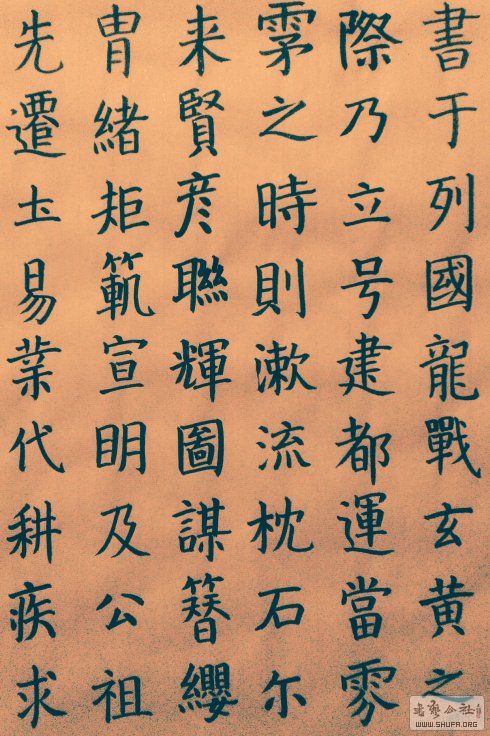 書于列國龍戰玄黃之
際乃立号建都運當雰
雺之時則漱流枕石尓
来賢彦聯輝圖謀簮纓
胄緒矩範宣明及公祖
先遷圡易業代耕疾求
书艺公社
WWW.SHUFA.ORG